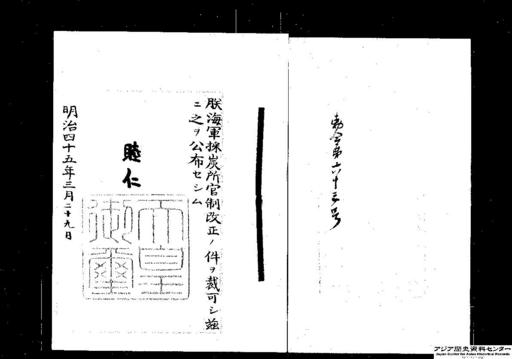 勅令第六十三号
朕海軍採炭所官制改正ノ件ヲ裁可シ茲
ニ之ヲ公布セシム
睦仁
天皇
御璽
明治四十五年三月二十九日
アジア歴史資料センター
Japan Center for Asian Historical Records